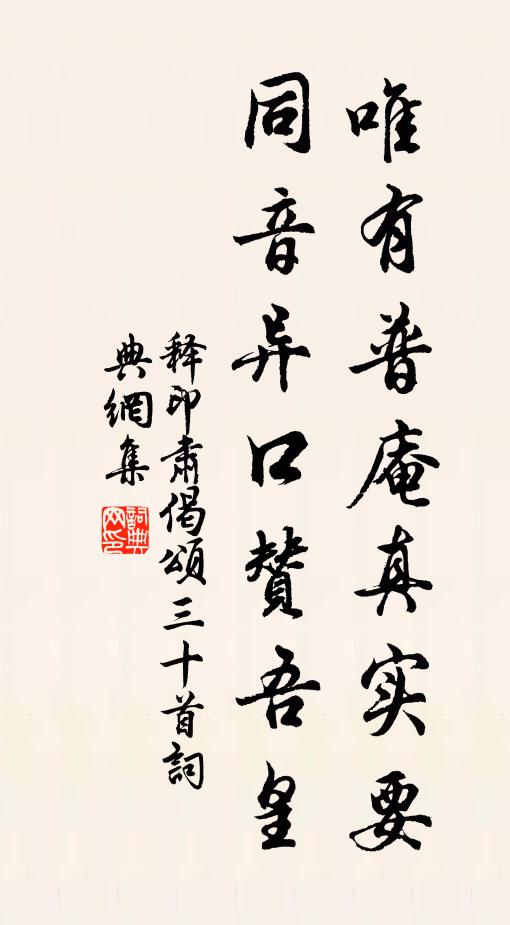 唯有普庵真实要
同音异口赞吾皇
释印肃偈颂三十首詞
典網集
詞典
网印